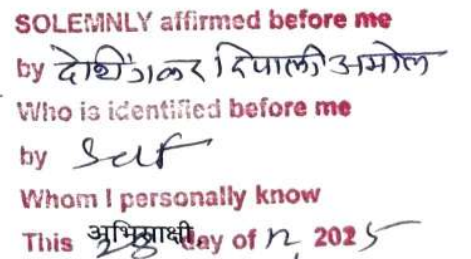 SOLEMNLY affirmed before me
by दोशिंगकर दिपाली अमोल
Who is identified before me
by Self
Whom I personally know
This अभिसाक्षी day of 12, 2025